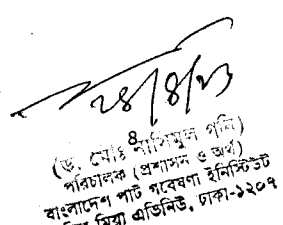 ২৪/৪/২৩
৪
(ড. মোঃ নাসিমুল গনি)
পরিচালক (প্রশাসন ও অর্থ)
বাংলাদেশ পাট গবেষণা ইনস্টিটিউট
মিয়া এভিনিউ, ঢাকা-১২০৭